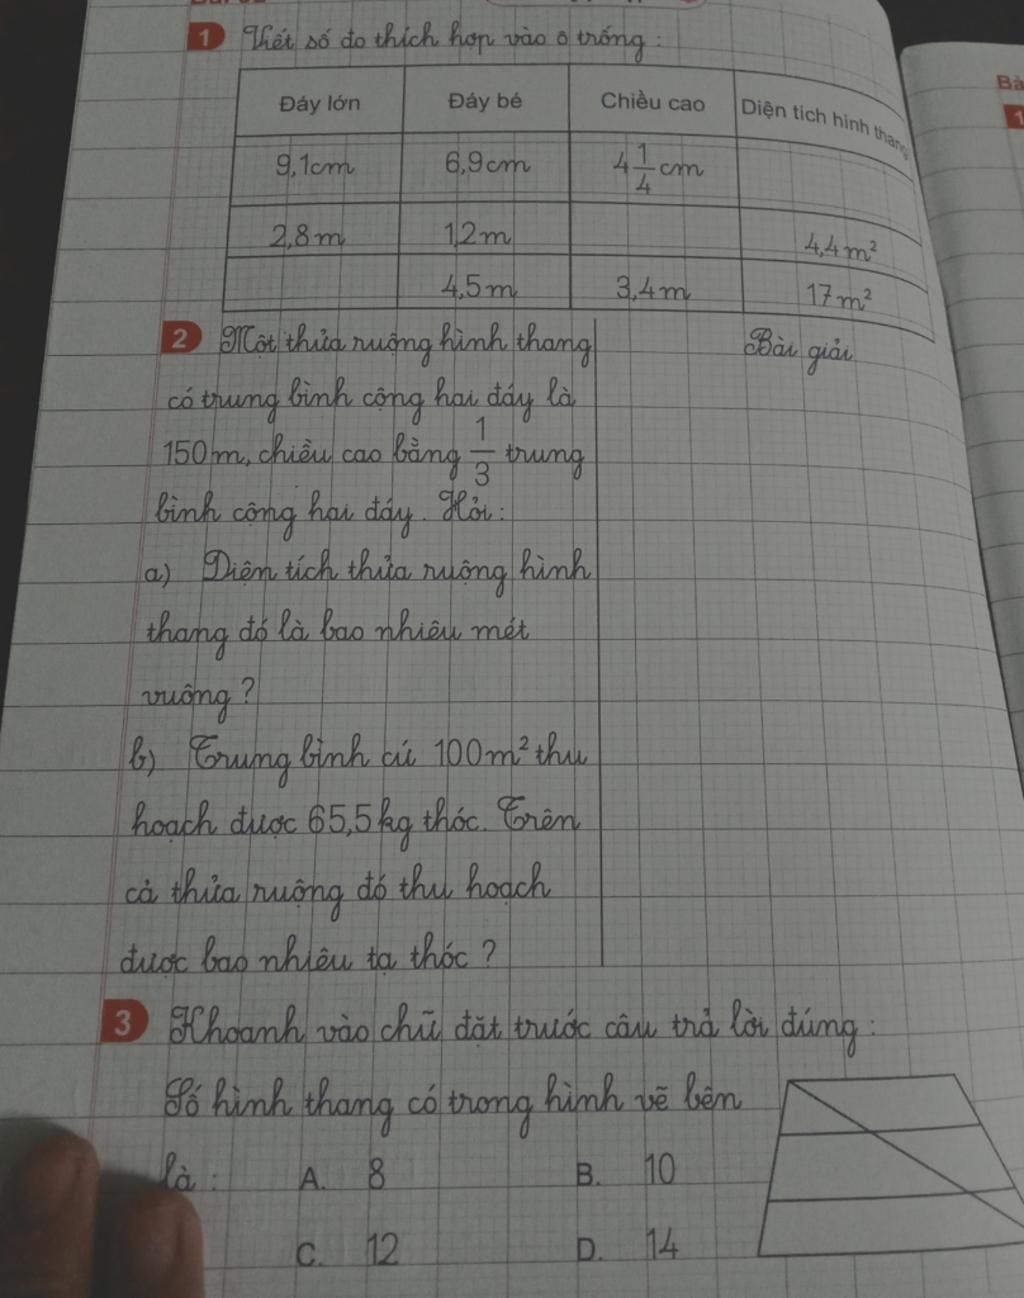 1 Viết số đo thích hợp vào ô trống:
Đáy lớn Đáy bé Chiều cao Diện tích hình thang
9,1cm 6,9cm 4 1/4 cm
2,8m 1,2m 4,4m²
4,5m 3,4m 17m²
2 Một thửa ruộng hình thang
có trung bình cộng hai đáy là
150m, chiều cao bằng 1/3 trung
bình cộng hai đáy. Hỏi:
a) Diện tích thửa ruộng hình
thang đó là bao nhiêu mét
vuông?
b) Trung bình cứ 100m² thu
hoạch được 65,5kg thóc. Trên
cả thửa ruộng đó thu hoạch
được bao nhiêu tạ thóc?
Bài giải
3 Khoanh vào chữ đặt trước câu trả lời đúng:
Số hình thang có trong hình vẽ bên
là: A. 8 B. 10
C. 12 D. 14
Bà
1